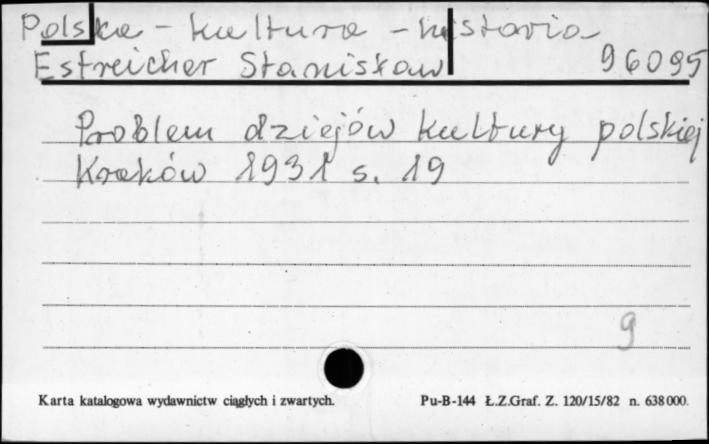 Polska - kultura - historia
Estreicher Stanisław 96095
Problem dziejów kultury polskiej
Kraków 1931 s. 19
g
Karta katalogowa wydawnictw ciągłych i zwartych. Pu-B-144 Ł.Z.Graf. Z. 120/15/82 n. 638000.